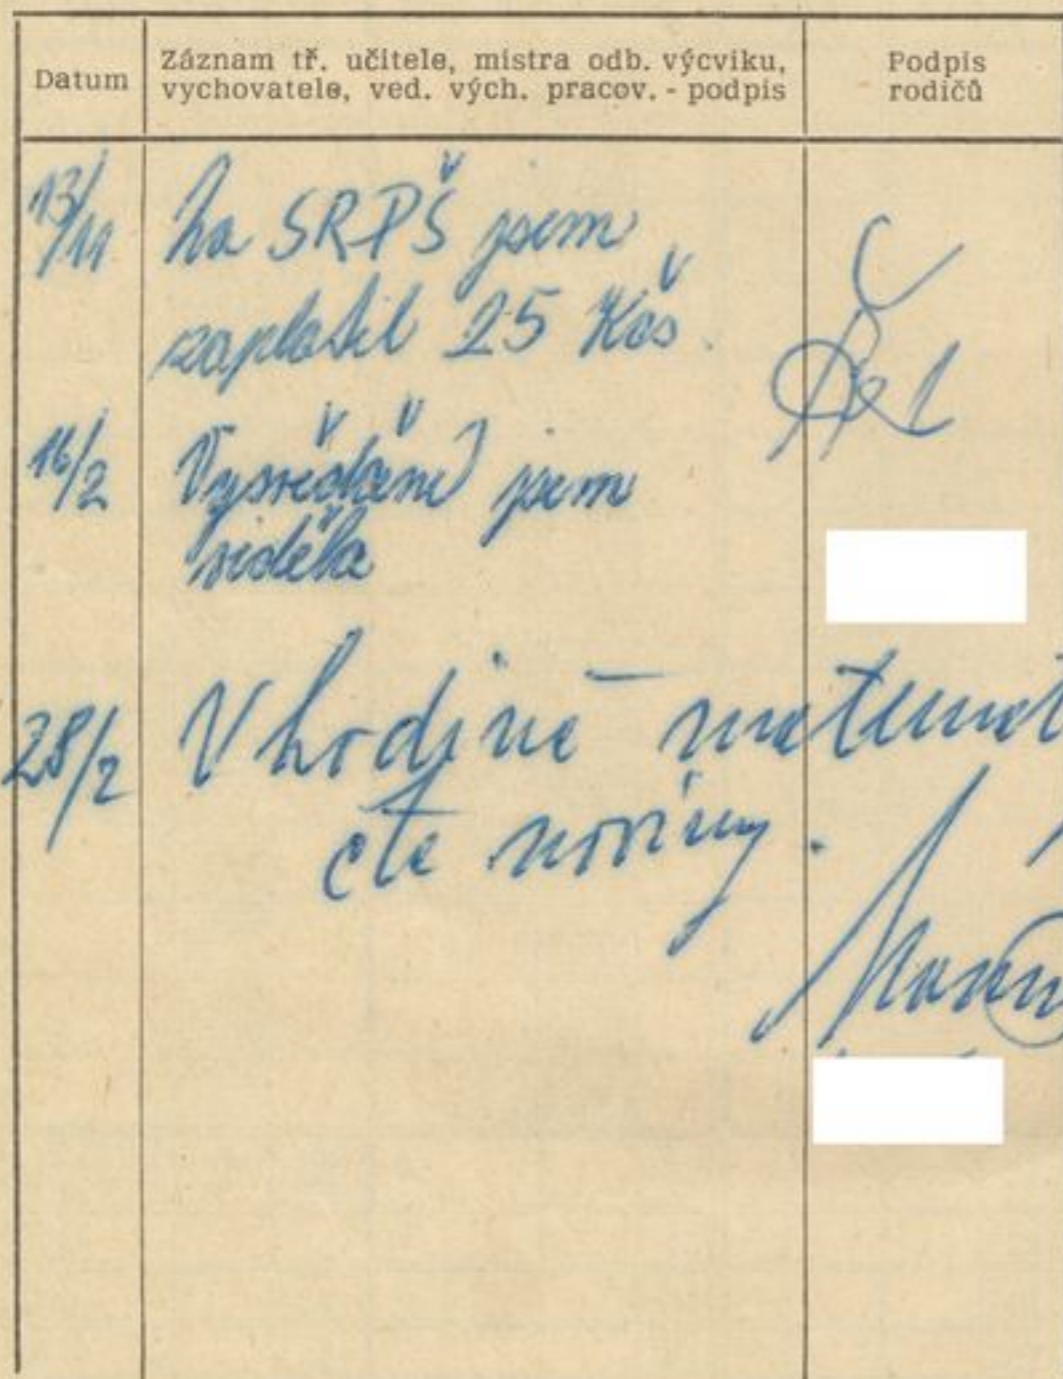 Datum
Záznam tř. učitele, mistra odb. výcviku,
vychovatele, ved. vých. pracov. - podpis
Podpis
rodičů
13/11
Na SRPŠ jsem
zaplatil 25 Kčs.
16/2
Vysvědčení jsem
viděla
28/2
V hodině matemat
čte noviny.